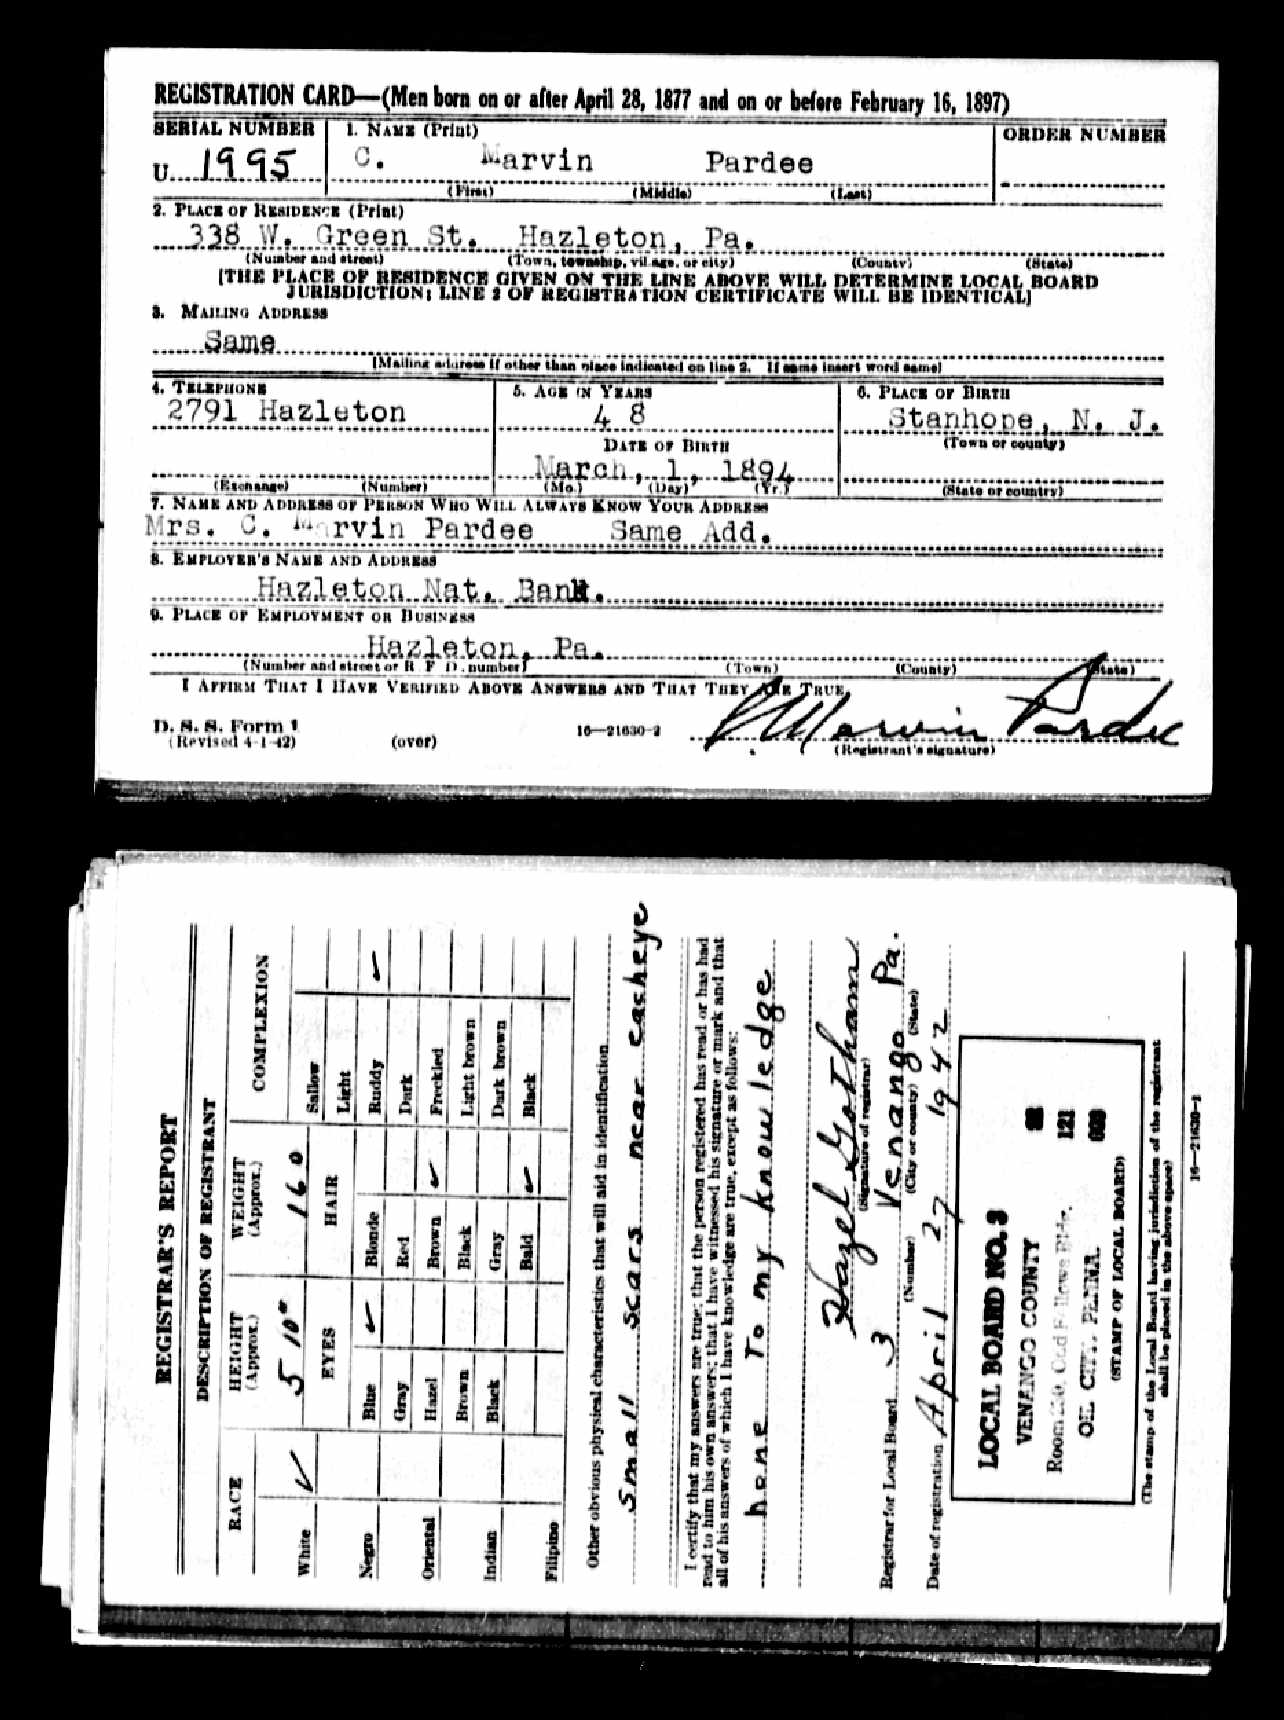 REGISTRATION CARD—(Men born on or after April 28, 1877 and on or before February 16, 1897)
SERIAL NUMBER
1. NAME (Print)
ORDER NUMBER
U 1995
C. Marvin Pardee
(First) (Middle) (Last)
2. PLACE OF RESIDENCE (Print)
338 W. Green St. Hazleton, Pa.
(Number and street) (Town, township, village, or city) (County) (State)
[THE PLACE OF RESIDENCE GIVEN ON THE LINE ABOVE WILL DETERMINE LOCAL BOARD
JURISDICTION; LINE 2 OF REGISTRATION CERTIFICATE WILL BE IDENTICAL]
3. MAILING ADDRESS
Same
[Mailing address if other than place indicated on line 2. If same insert word same]
4. TELEPHONE
5. AGE IN YEARS
6. PLACE OF BIRTH
2791 Hazleton
48
Stanhope, N. J.
DATE OF BIRTH
(Town or county)
March, 1, 1894
(Exchange) (Number)
(Mo.) (Day) (Yr.)
(State or country)
7. NAME AND ADDRESS OF PERSON WHO WILL ALWAYS KNOW YOUR ADDRESS
Mrs. C. Marvin Pardee Same Add.
8. EMPLOYER'S NAME AND ADDRESS
Hazleton Nat. Bank.
9. PLACE OF EMPLOYMENT OR BUSINESS
Hazleton, Pa.
(Number and street or R. F. D. number) (Town) (County) (State)
I AFFIRM THAT I HAVE VERIFIED ABOVE ANSWERS AND THAT THEY ARE TRUE.
D. S. S. Form 1
(Revised 4-1-42) (over) 16—21630-2
C. Marvin Pardee
(Registrant's signature)
REGISTRAR'S REPORT
DESCRIPTION OF REGISTRANT
RACE
HEIGHT (Approx.)
WEIGHT (Approx.)
COMPLEXION
5 10"
160
White ✓
EYES
HAIR
Sallow
Light
Negro
Blue ✓
Blonde
Ruddy ✓
Gray
Red
Dark
Oriental
Hazel
Brown ✓
Freckled
Brown
Black
Light brown
Indian
Black
Gray
Dark brown
Bald ✓
Black
Filipino
Other obvious physical characteristics that will aid in identification
small scars near eacheye
I certify that my answers are true; that the person registered has read or has had
read to him his own answers; that I have witnessed his signature or mark and that
all of his answers of which I have knowledge are true, except as follows:
none To my knowledge
Hazel Gotham
(Signature of registrar)
Registrar for Local Board 3 Venango Pa.
(Number) (City or county) (State)
Date of registration April 27 1942
LOCAL BOARD NO. 3
VENANGO COUNTY
121
Room Odd Fellows Bldg.
OIL CITY, PENNA.
(STAMP OF LOCAL BOARD)
(The stamp of the Local Board having jurisdiction of the registrant
shall be placed in the above space)
16—21630-2